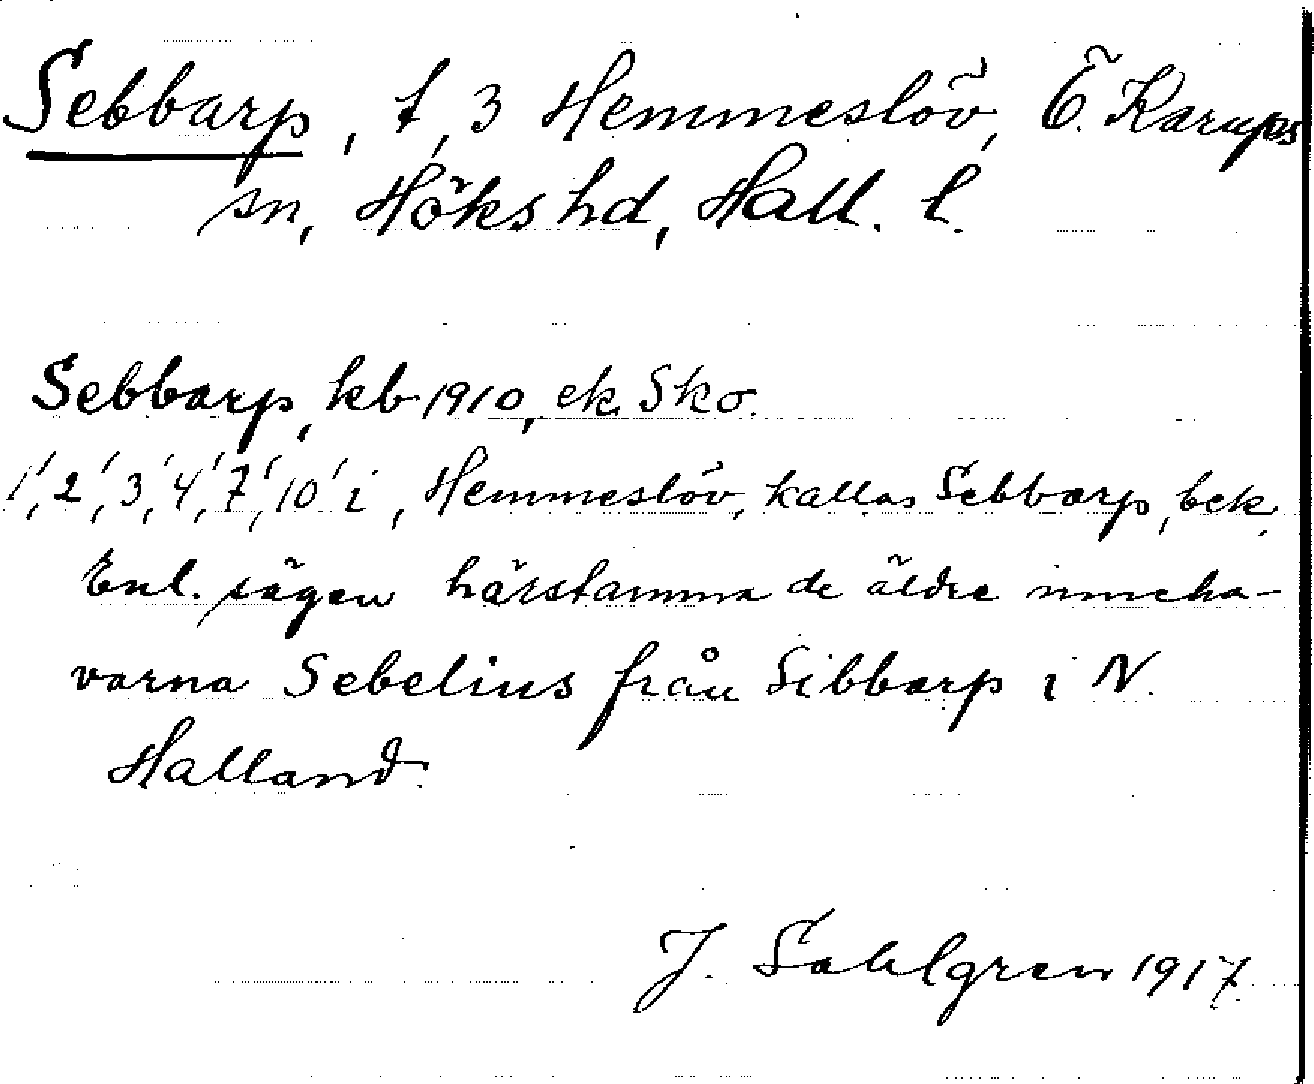 Sebbarp, t, 3 Hemmeslöv, Ö. Karups
sn, Höks hd, Hall. l.
Sebbarp, kb 1910, ek. Sko.
1', 2', 3', 4', 7', 10' i, Hemmeslöv, kallas Sebbarp, bek.
Enl. sägen härstamma de äldre inneha-
varna Sebelius från Sibbarp i N.
Halland.
J. Sahlgren 1917